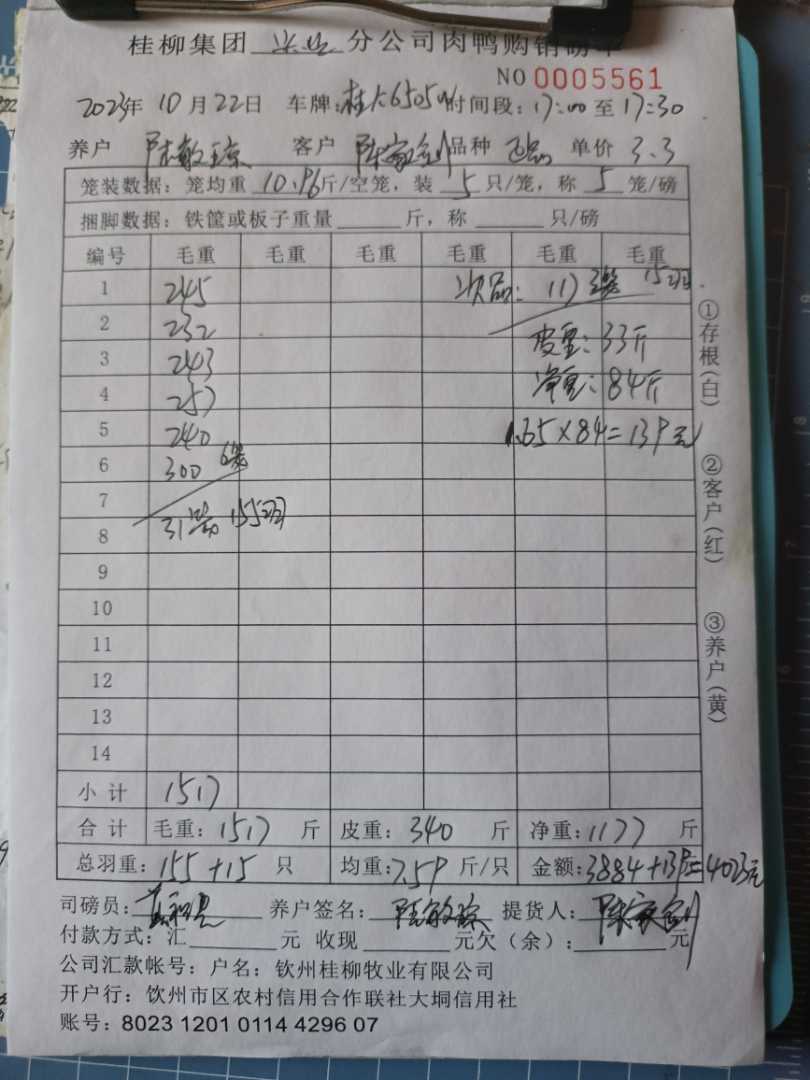 桂柳集团 分公司肉鸭购销磅单
NO 0005561
2023年 10月22日 车牌:桂K6505W 时间段:17:00至17:30
养户 陆敏琼 客户 陈家剑 品种 正品 单价 3.3
笼装数据:笼均重 10.96 斤/空笼,装 5 只/笼,称 5 笼/磅
捆脚数据:铁筐或板子重量 斤,称 只/磅
编号 毛重 毛重 毛重 毛重 毛重 毛重
1 245 次品: 117 3笼 15羽
2 232 皮重: 33斤
3 243
4 257 净重: 84斤
5 240 1.65×84=139元
6 300 6笼
7
8 31笼 155羽
9
10
11
12
13
14
小计 1517
合计 毛重: 1517 斤 皮重: 340 斤 净重: 1177 斤
总羽重: 155+15 只 均重: 7.59 斤/只 金额: 3884+139=4023元
司磅员: 养户签名: 陆敏琼 提货人: 陈家剑
付款方式:汇 元 收现 元欠(余): 元
公司汇款帐号:户名:钦州桂柳牧业有限公司
开户行:钦州市区农村信用合作联社大垌信用社
账号:8023 1201 0114 4296 07
①存根(白)
②客户(红)
③养户(黄)